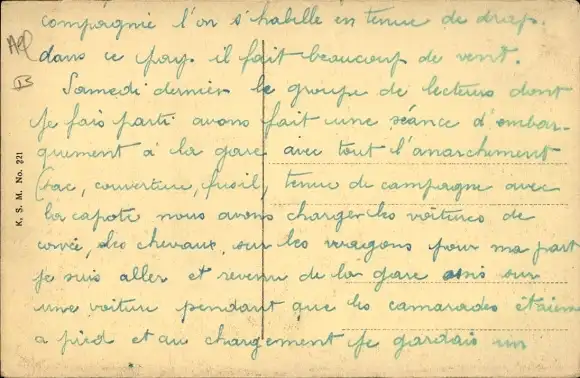 compagnie l'on s'habille en tenue de drap.
dans ce pays il fait beaucoup de vent.
Samedi dernier le groupe de lecteurs dont
je fais parti avons fait une séance d'embar-
quement à la gare avec tout l'anarchement
(sac, couverture, fusil, tenue de campagne avec
la capote nous avons charger les voitures de
corvée, des chevaux, sur les wagons pour ma part
je suis aller et revenu de la gare assis sur
une voiture pendant que les camarades étaient
a pied et au chargement je gardais un
K. S. M. No. 221